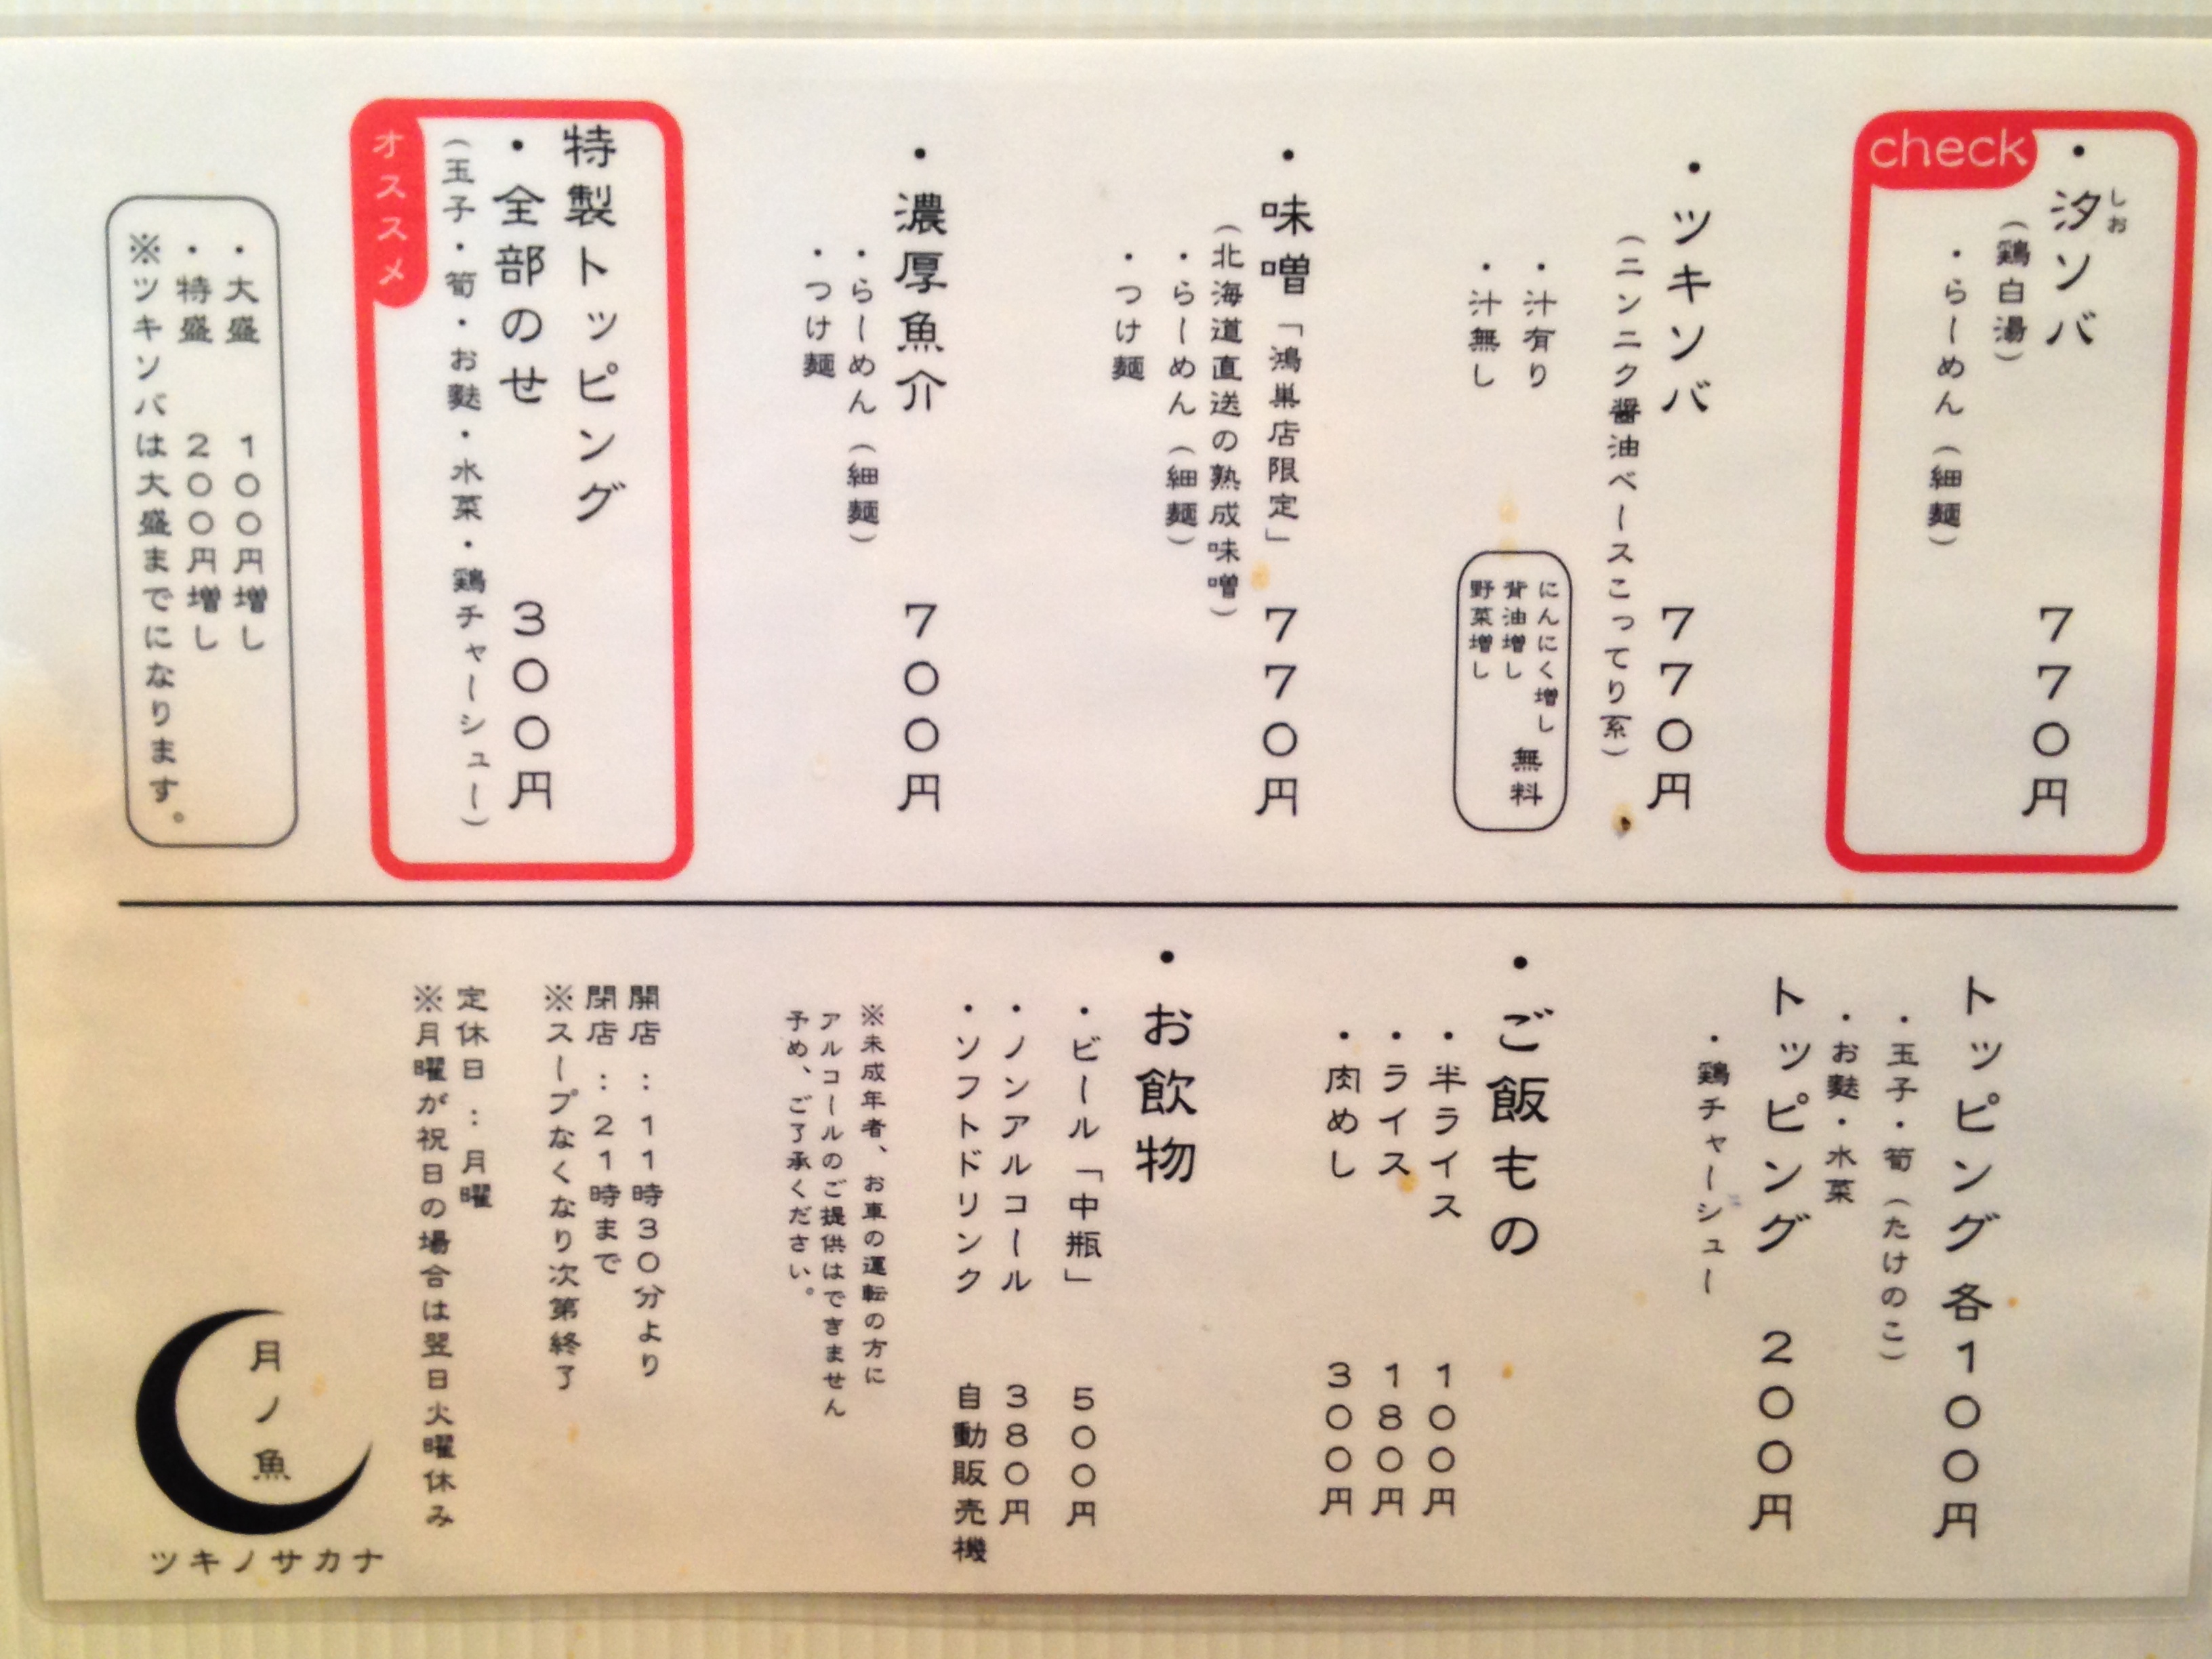 check
・汐ソバ 770円
しお
(鶏白湯)
・らーめん(細麺)
・ツキソバ 770円
(ニンニク醤油ベースこってり系)
・汁有り
・汁無し
にんにく増し
背油増し
野菜増し
無料
・味噌「鴻巣店限定」 770円
(北海道直送の熟成味噌)
・らーめん(細麺)
・つけ麺
・濃厚魚介 700円
・らーめん(細麺)
・つけ麺
特製トッピング
・全部のせ 300円
(玉子・筍・お麩・水菜・鶏チャーシュー)
オススメ
・大盛 100円増し
・特盛 200円増し
※ツキソバは大盛までになります。
トッピング 各100円
・玉子・筍(たけのこ)
・お麩・水菜
トッピング 200円
・鶏チャーシュー
・ご飯もの
・半ライス 100円
・ライス 180円
・肉めし 300円
・お飲物
・ビール「中瓶」 500円
・ノンアルコール 380円
・ソフトドリンク 自動販売機
※未成年者、お車の運転の方に
アルコールのご提供はできません
予め、ご了承ください。
開店:11時30分より
閉店:21時まで
※スープなくなり次第終了
定休日:月曜
※月曜が祝日の場合は翌日火曜休み
月ノ魚
ツキノサカナ